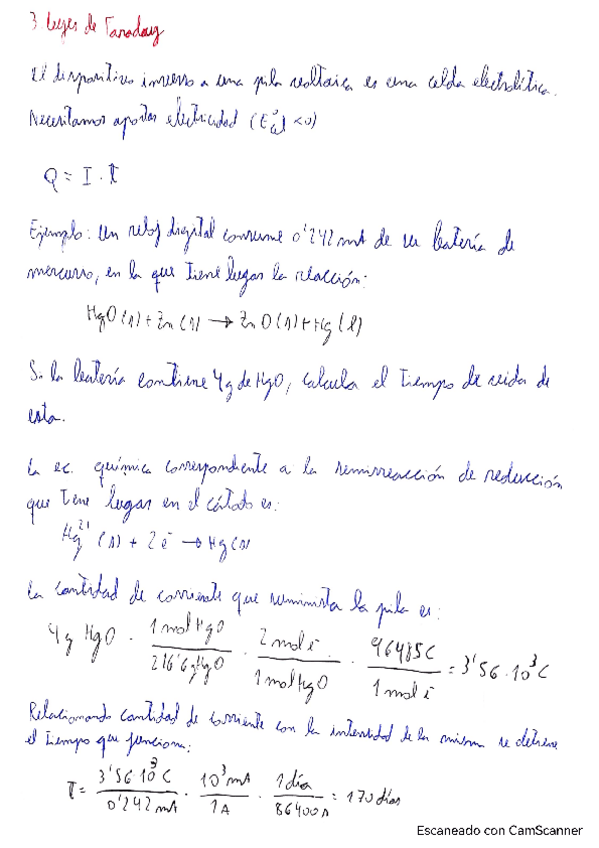 3 Leyes de Faraday
El dispositivo inverso a una pila voltaica es una celda electrolítica.
Necesitamos aportar electricidad (E°cel <0)
Q = I · t
Ejemplo: Un reloj digital consume 0'242 mA de un batería de
mercurio, en la que tiene lugar la reacción:
HgO (s) + Zn (s) → ZnO (s) + Hg (l)
Si la batería contiene 4g de HgO, calcula el tiempo de vida de
esta.
La ec. química correspondiente a la semirreacción de reducción
que tiene lugar en el cátodo es:
Hg²⁺ (s) + 2 é → Hg (s)
La cantidad de corriente que suministra la pila es:
4g HgO · 1 mol HgO / 216'6 g HgO · 2 mol é / 1 mol HgO · 96485 C / 1 mol é = 3'56 · 10³ C
Relacionando cantidad de corriente con la intensidad de la misma se obtiene
el tiempo que funciona:
t = 3'56 10³ C / 0'242 mA · 10³ mA / 1A · 1 día / 86400 s = 170 días
Escaneado con CamScanner